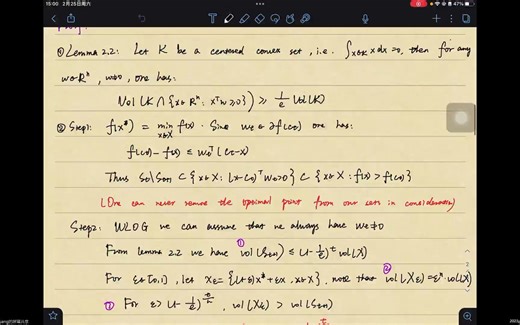 15:00 2月25日周六
47%
① Lemma 2.2: Let K be a centered convex set, i.e. ∫x∈K x dx = 0, then for any
w∈Rⁿ, w≠0, one has:
Vol (K ∩ {x∈Rⁿ: xᵀw ≥ 0}) ≥ 1/e Vol(K)
② Step1: f(x*) = min x∈X f(x). Since wt ∈ ∂f(ct) one has:
f(ct) - f(x) ≤ wtᵀ(ct-x)
Thus St\St+1 ⊂ {x∈X: (x-ct)ᵀwt>0} ⊂ {x∈X: f(x)>f(ct)}
(One can never remove the optimal point from our sets in consideration)
Step2: WLOG we can assume that we always have wt≠0
From lemma 2.2 we have ① vol(St+1) ≤ (1-1/e)ᵗ vol(X)
For ε∈[0,1], let Xε={(1-ε)x*+εx, x∈X}. note that ② vol(Xε)=εⁿ vol(X)
③ For ε>(1-1/e)^(t/n), vol(Xε) > vol(St+1)